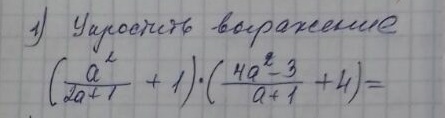 1) Упростить выражение
(a²/(2a+1) + 1)·((4a²-3)/(a+1) + 4)=